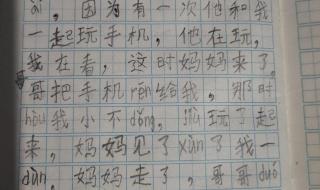 ài,因为有一次他和我
一起玩手机,他在玩,
我在看,这时妈妈来了,
哥把手机rēn给我。那时
hòu我小不dǒng,jiù玩了起
来,妈妈见了xùn了我一
dùn。妈妈走了,哥哥duó